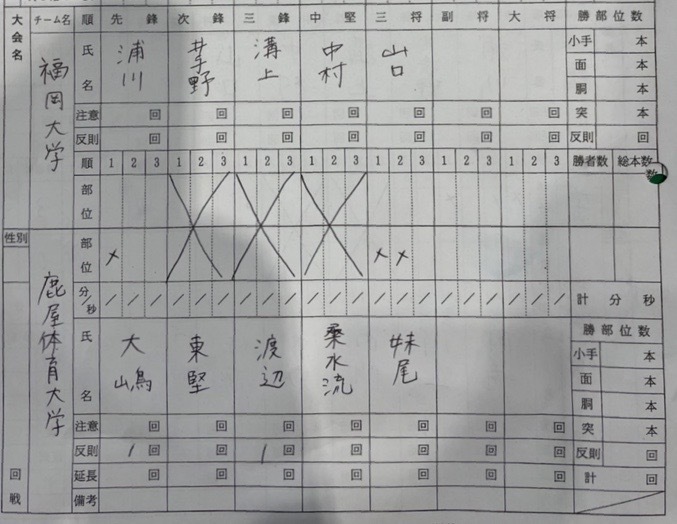 大会名 チーム名 順 先鋒 次鋒 三鋒 中堅 三将 副将 大将 勝部位数
福岡大学 氏名 浦川 溝上 中村 山口 小手 本
面 本
胴 本
注意 回 回 回 回 回 回 回 突 本
反則 回 回 回 回 回 回 回 反則 回
順 1 2 3 1 2 3 1 2 3 1 2 3 1 2 3 1 2 3 1 2 3 勝者数 総本数
部位 数
性別 鹿屋体育大学 部位 × × ×
分/秒 / / / / / / / / / / / / / / / / / / / / / 計 分 秒
氏名 大嶋 東堅 渡辺 桑水流 妹尾 勝部位数
小手 本
面 本
胴 本
注意 回 回 回 回 回 回 回 突 本
反則 1回 回 1回 回 回 回 回 反則 回
回戦 延長 回 回 回 回 回 回 回 計 回
備考